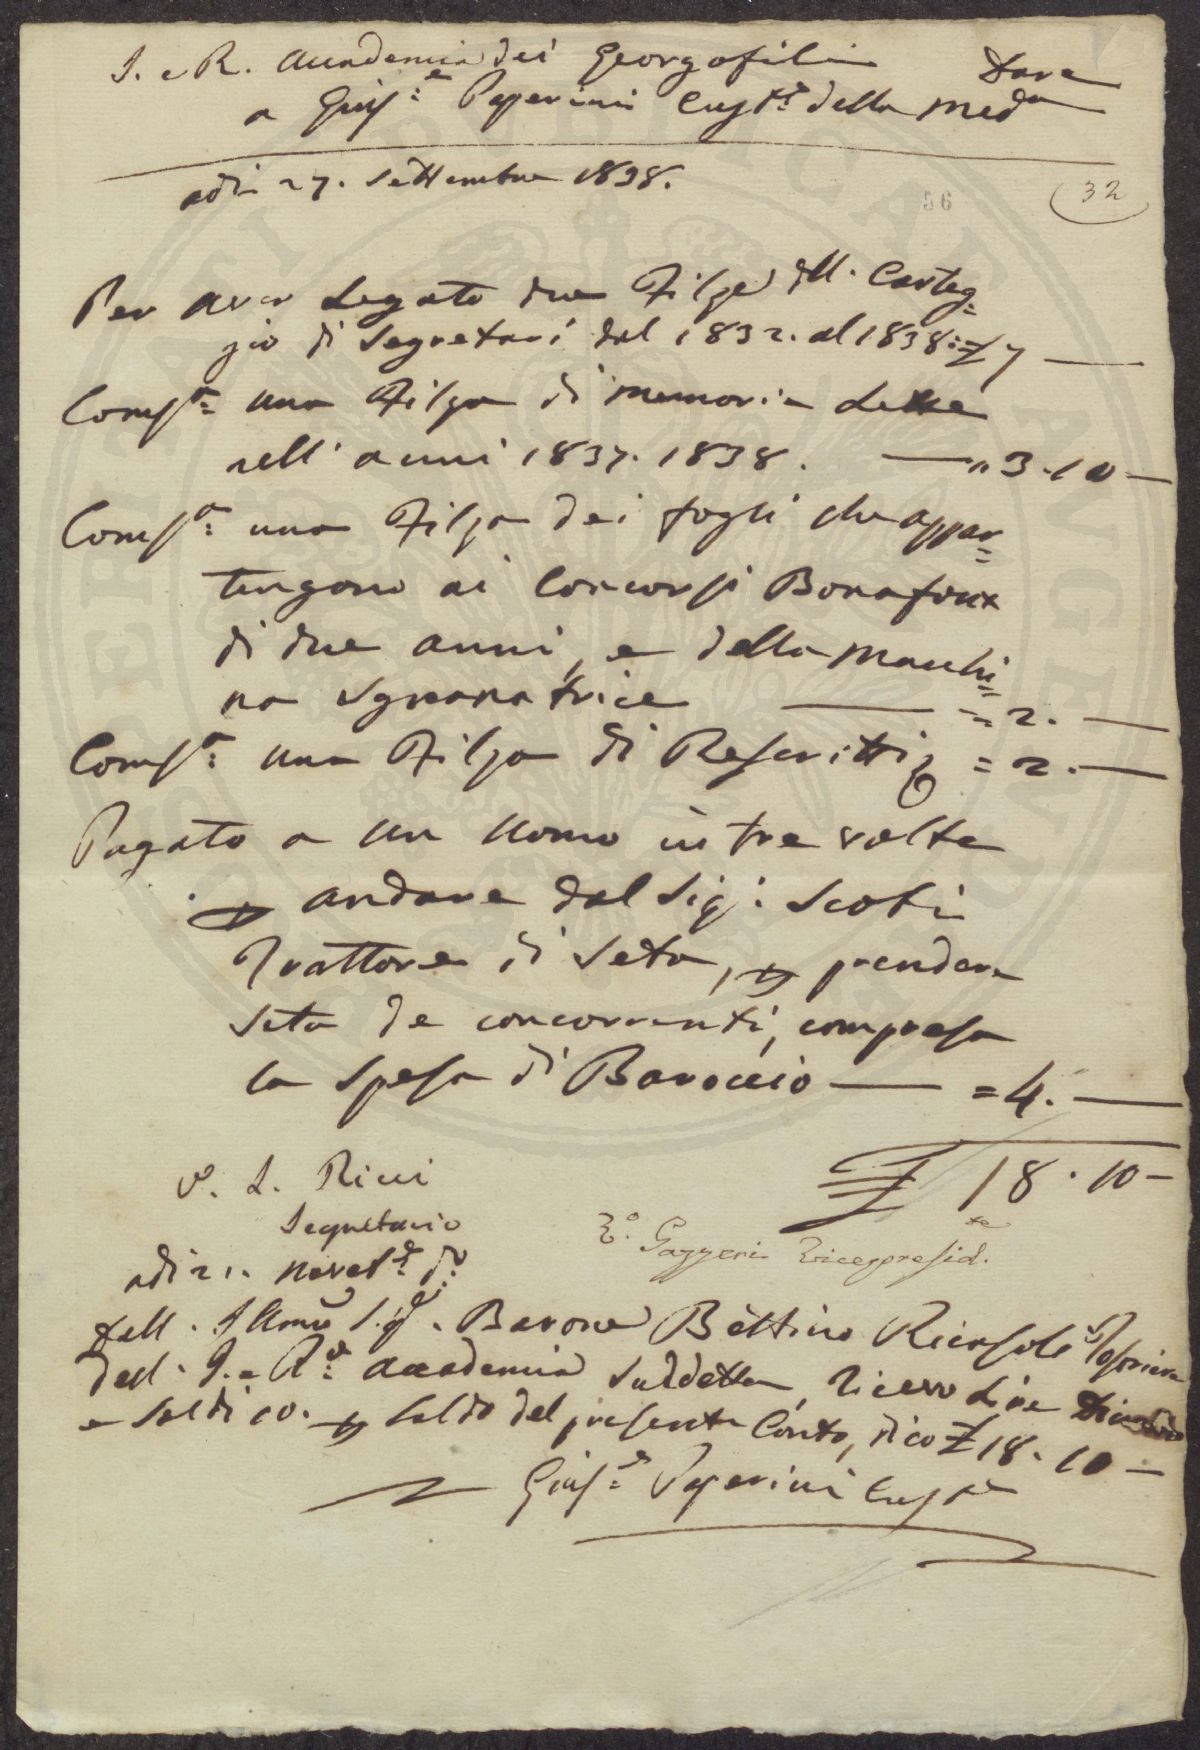 I. e R. Accademia dei Georgofili Dare
a Gius.e Peperini Cust.e della Med.a
adi 27. Settembre 1838.
56
32
Per aver Legato due Filze del Carteg=
gio di Segretari dal 1832. al 1838: £ 7 —
Comp.a una Filza di memorie Lette
nell' anni 1837. 1838. — " 3. 10 —
Comp.a una Filza dei fogli che appar=
tengono ai Concorsi Bonafoux
di due anni, e della Macchi=
na Sgranatrice — = 2. —
Comp.a una Filza di Rescritti = 2. —
Pagato a un Uomo in tre volte
p andare dal Sig: Scoti
Trattore di Seta, p prendere
Seta de concorrenti, compresa
la spesa di Baroccio — = 4. —
£ 18. 10 —
V. L. Ricci
Segretario
V.o Gazzeri Vicepresid.te
adi 21. Novel.e d.o
Dall. Illmo Sig.e Barone Bettino Ricasoli Tesoriere
dell' I. e R.e Accademia Suddetta, Ricevo Lire Diciotto
e Soldi 10. p Saldo del presente Conto, dico £ 18. 10 —
Gius.e Peperini Cust.e